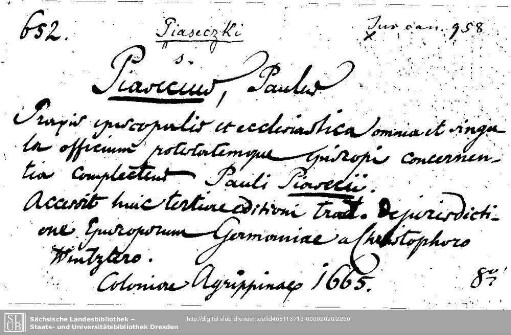 652. Piaseczki Jus can. 958
s.
Piasecius, Paulus
Praxis episcopalis et ecclesiastica omnia et singu
la officium potestatemque Episcopi concernen-
tia complectens Pauli Piasecii.
Accessit huic tertiae editioni tract. De jurisdicti-
one Episcoporum Germaniae a Christophoro
Wintzlero.
Coloniae Agrippinae 1665. 8°
Sächsische Landesbibliothek –
Staats- und Universitätsbibliothek Dresden